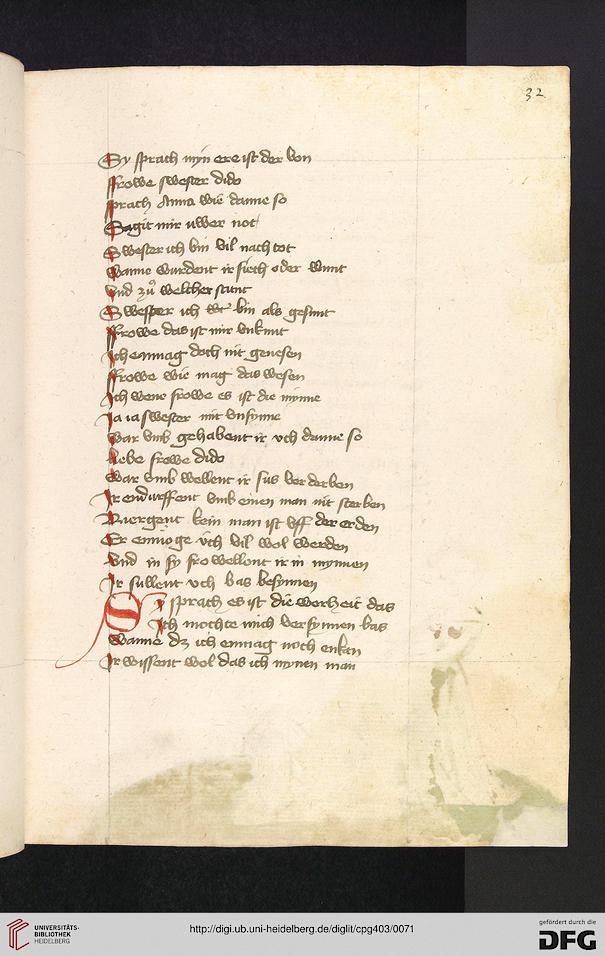 32
Sy sprach myn ere ist der von
ffrowe swester dido
sprach Anna wie danne so
Sagit mir uwer not
Swester ich bin vil nach tot
Wanne wurdent ir siech oder wunt
Vnd zů welcher stunt
Swester ich bin als gesunt
ffrowe das ist mir vnkunt
Ich enmag doch nit genesen
ffrowe wie mag das wesen
Ich wene frowe es ist die mynne
Ja ia swester mit vnsynne
War vmb gehabent ir vch danne so
liebe frowe dido
War vmb wellent ir sus verderben
Ir endurffent vmb einen man nit sterben
Niergent kein man ist vff der erden
Er enmoge vch vil wol werden
Vnd in sy frowellont ir in mynnen
Ir sullent vch bas besynnen
Sy sprach es ist die worheit das
Ich mochte mich versynnen bas
Wanne dz ich enmag noch enkan
Ir wissent wol das ich mynen man
UNIVERSITÄTS-
BIBLIOTHEK
HEIDELBERG
http://digi.ub.uni-heidelberg.de/diglit/cpg403/0071
gefördert durch die
DFG